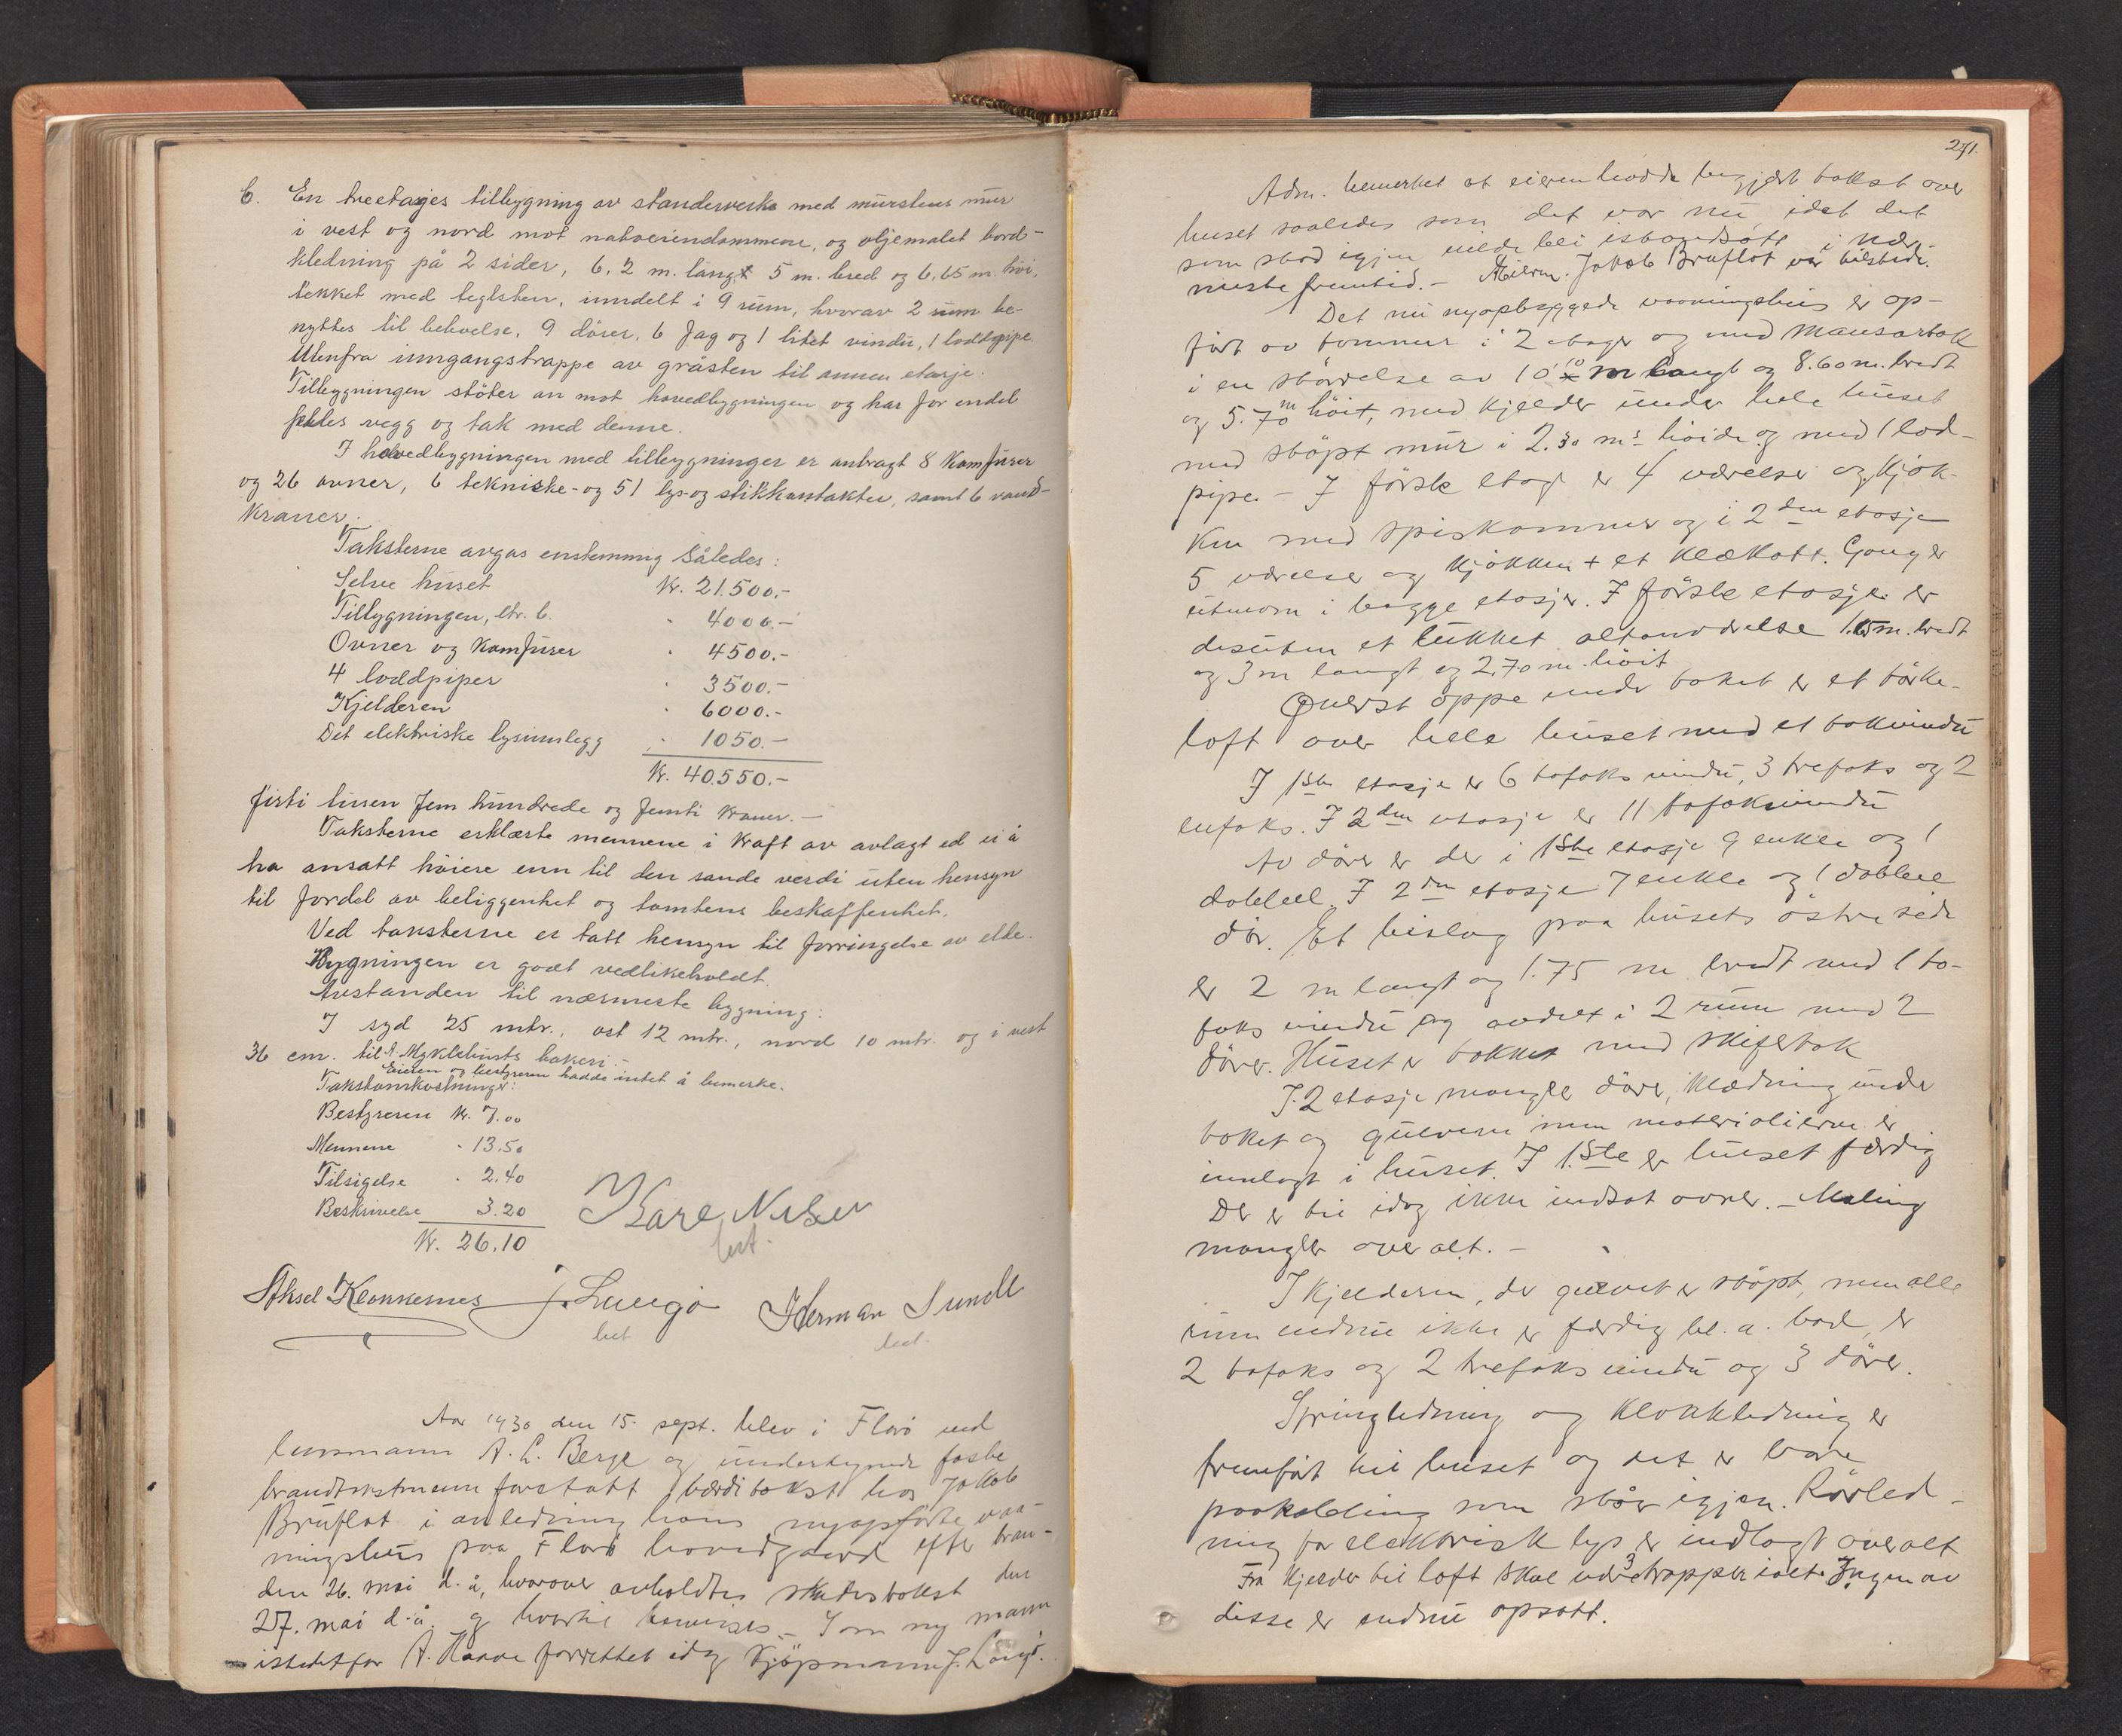 b. En treetasjes tilbygning av standerverk med murstens mur
i vest og nord mot naboeiendommene, og oljemalet bord-
kledning på 2 sider, 6,2 m. langt 5 m. bred og 6,65 m. høi,
tekket med teglsten, inndelt i 9 rum, hvorav 2 rum be-
nyttes til beboelse. 9 dører, 6 fag og 1 litet vindu, 1 loddpipe.
Utenfra inngangstrappe av gråsten til annen etasje.
Tilbygningen støter an mot hovedbygningen og har for endel
felles vegg og tak med denne.
I hovedbygningen med tilbygninger er anbragt 8 komfurer
og 26 ovner, 6 tekniske- og 51 lys- og stikkontakter, samt 6 vand-
kraner.
Taksterne avgas enstemmig således:
Selve huset Kr. 21.500.-
Tilbygningen, ltr. b. " 4000.-
Ovner og komfurer " 4500.-
4 loddpiper " 3500.-
Kjelderen " 6000.-
Det elektriske lysinnlegg " 1050.-
Kr. 40.550.-
firti tusen fem hundrede og femti kroner. -
Taksterne erklærte mennene i kraft av avlagt ed ei å
ha ansatt høiere enn til den sande verdi uten hensyn
til fordel av beliggenhet og tomtens beskaffenhet.
Ved taksterne er tatt hensyn til forringelse av elde.
Bygningen er godt vedlikeholdt.
Avstanden til nærmeste bygning:
I syd 25 mtr., ost 12 mtr., nord 10 mtr. og i vest
36 cm. til A. Myklebusts bakeri. -
Eieren og bestyreren hadde intet å bemerke.
Takstomkostninger:
Bestyreren Kr. 7.00
Mennene " 13.50
Tilsigelse " 2.40
Beskrivelse 3.20
Kr. 26.10
Kåre Nilsen
best.
Aksel Klonkernes J. Langø Herman Sunde
best best.
Aar 1930 den 15. sept. blev i Florø ved
lensmann A. L. Berge og undertegnede faste
branntakstmenn foretatt verditakst hos Jakob
Bruflot i anledning hans nyopførte vaa-
ningshus paa Florø hovedgaard efter bran-
den 26. mai d.å, hvorover avholdtes skadestakst den
27. mai d.å. og hvortil henvises. - Som ny mann
istedetfor A. Haave forrettet idag kjøpmann J. Langø.
271.
Adm. bemerket at eieren hadde begjært takst over
huset saaledes som det var nu idet det
som stod igjen vilde bli istandsatt i nær-
meste fremtid. - Eieren Jakob Bruflot var tilstede.
Det nu nyopbyggede vaaningshus er op-
ført av tømmer i 2 etager og med Mansartak
i en størrelse av 10.10 m langt og 8.60 m. bredt
og 5.70 m høit, med kjelder under hele huset
med støpt mur i 2.30 ms høide og med 1 lod-
pipe. - I første etage er 4 værelser og kjøk-
ken med spiskammer og i 2den etasje
5 værelser og kjøkken + et klækott. Gang er
utenom i begge etasjer. I første etasje er
desuten et lukket altanværelse 1.65 m. bredt
og 3 m langt og 2.70 m. høit
Øverst oppe under taket er et tørke-
loft over hele huset med et takvindu
I 1ste etasje er 6 tofaks vindu, 3 trefaks og 2
enfaks. I 2den etasje er 11 tofaksvindu
Av dører er der i 1ste etasje 9 enkle og 1
dobbel. I 2den etasje 7 enkle og 1 dobbel
dør. Et bislag paa husets østre side
er 2 m langt og 1.75 m bredt med 1 to-
faks vindu og avdelt i 2 rum med 2
dører. Huset er takket med skifertak
I 2 etasje mangler dører, klædning under
taket og gulvene men materialierne er
innlagt i huset. I 1.ste er huset færdig
Der er til idag ikke indsat ovner. - Maling
mangler overalt. -
I kjelderen, der gulvet er støpt, men alle
rum endnu ikke er færdig bl. a. bad, er
2 tofaks og 2 trefaks vindu og 3 dører.
Springledning og kloakledning er
fremført til huset og det er bare
paakobling som står igjen. Rørled-
ning for elektrisk lys er indlagt overalt
Fra kjelder til loft skal være 3 trapper ialt. Ingen av
disse er endnu opsatt.